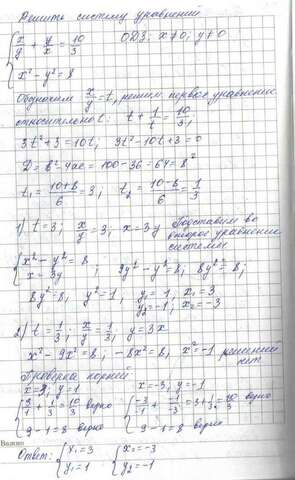 Решить систему уравнений
{ x/y + y/x = 10/3   ОДЗ: x≠0, y≠0
x² - y² = 8
Обозначим x/y = t, решим первое уравнение
относительно t: t + 1/t = 10/3;
3t² + 3 = 10t, 3t² - 10t + 3 = 0
D = b² - 4ac = 100 - 36 = 64 = 8²
t₁ = (10+8)/6 = 3; t₂ = (10-8)/6 = 1/3
1) t = 3; x/y = 3; x = 3y Подставим во
второе уравнение
системы
{ x² - y² = 8
x = 3y ; 9y² - y² = 8; 8y² = 8;
8y² = 8, y² = 1, y₁ = 1, x₁ = 3
y₂ = -1, x₂ = -3
2) t = 1/3; x/y = 1/3; y = 3x
x² - 9x² = 8, -8x² = 8, x² = -1 решений
нет
Проверка корней
x = 3, y = 1   x = -3, y = -1
{ 3/1 + 1/3 = 10/3 верно   { -3/-1 + -1/-3 = 3 + 1/3 = 10/3 верно
9 - 1 = 8 верно   9 - 1 = 8 верно
Важно
Ответ: { x₁ = 3   { x₂ = -3
y₁ = 1   y₂ = -1